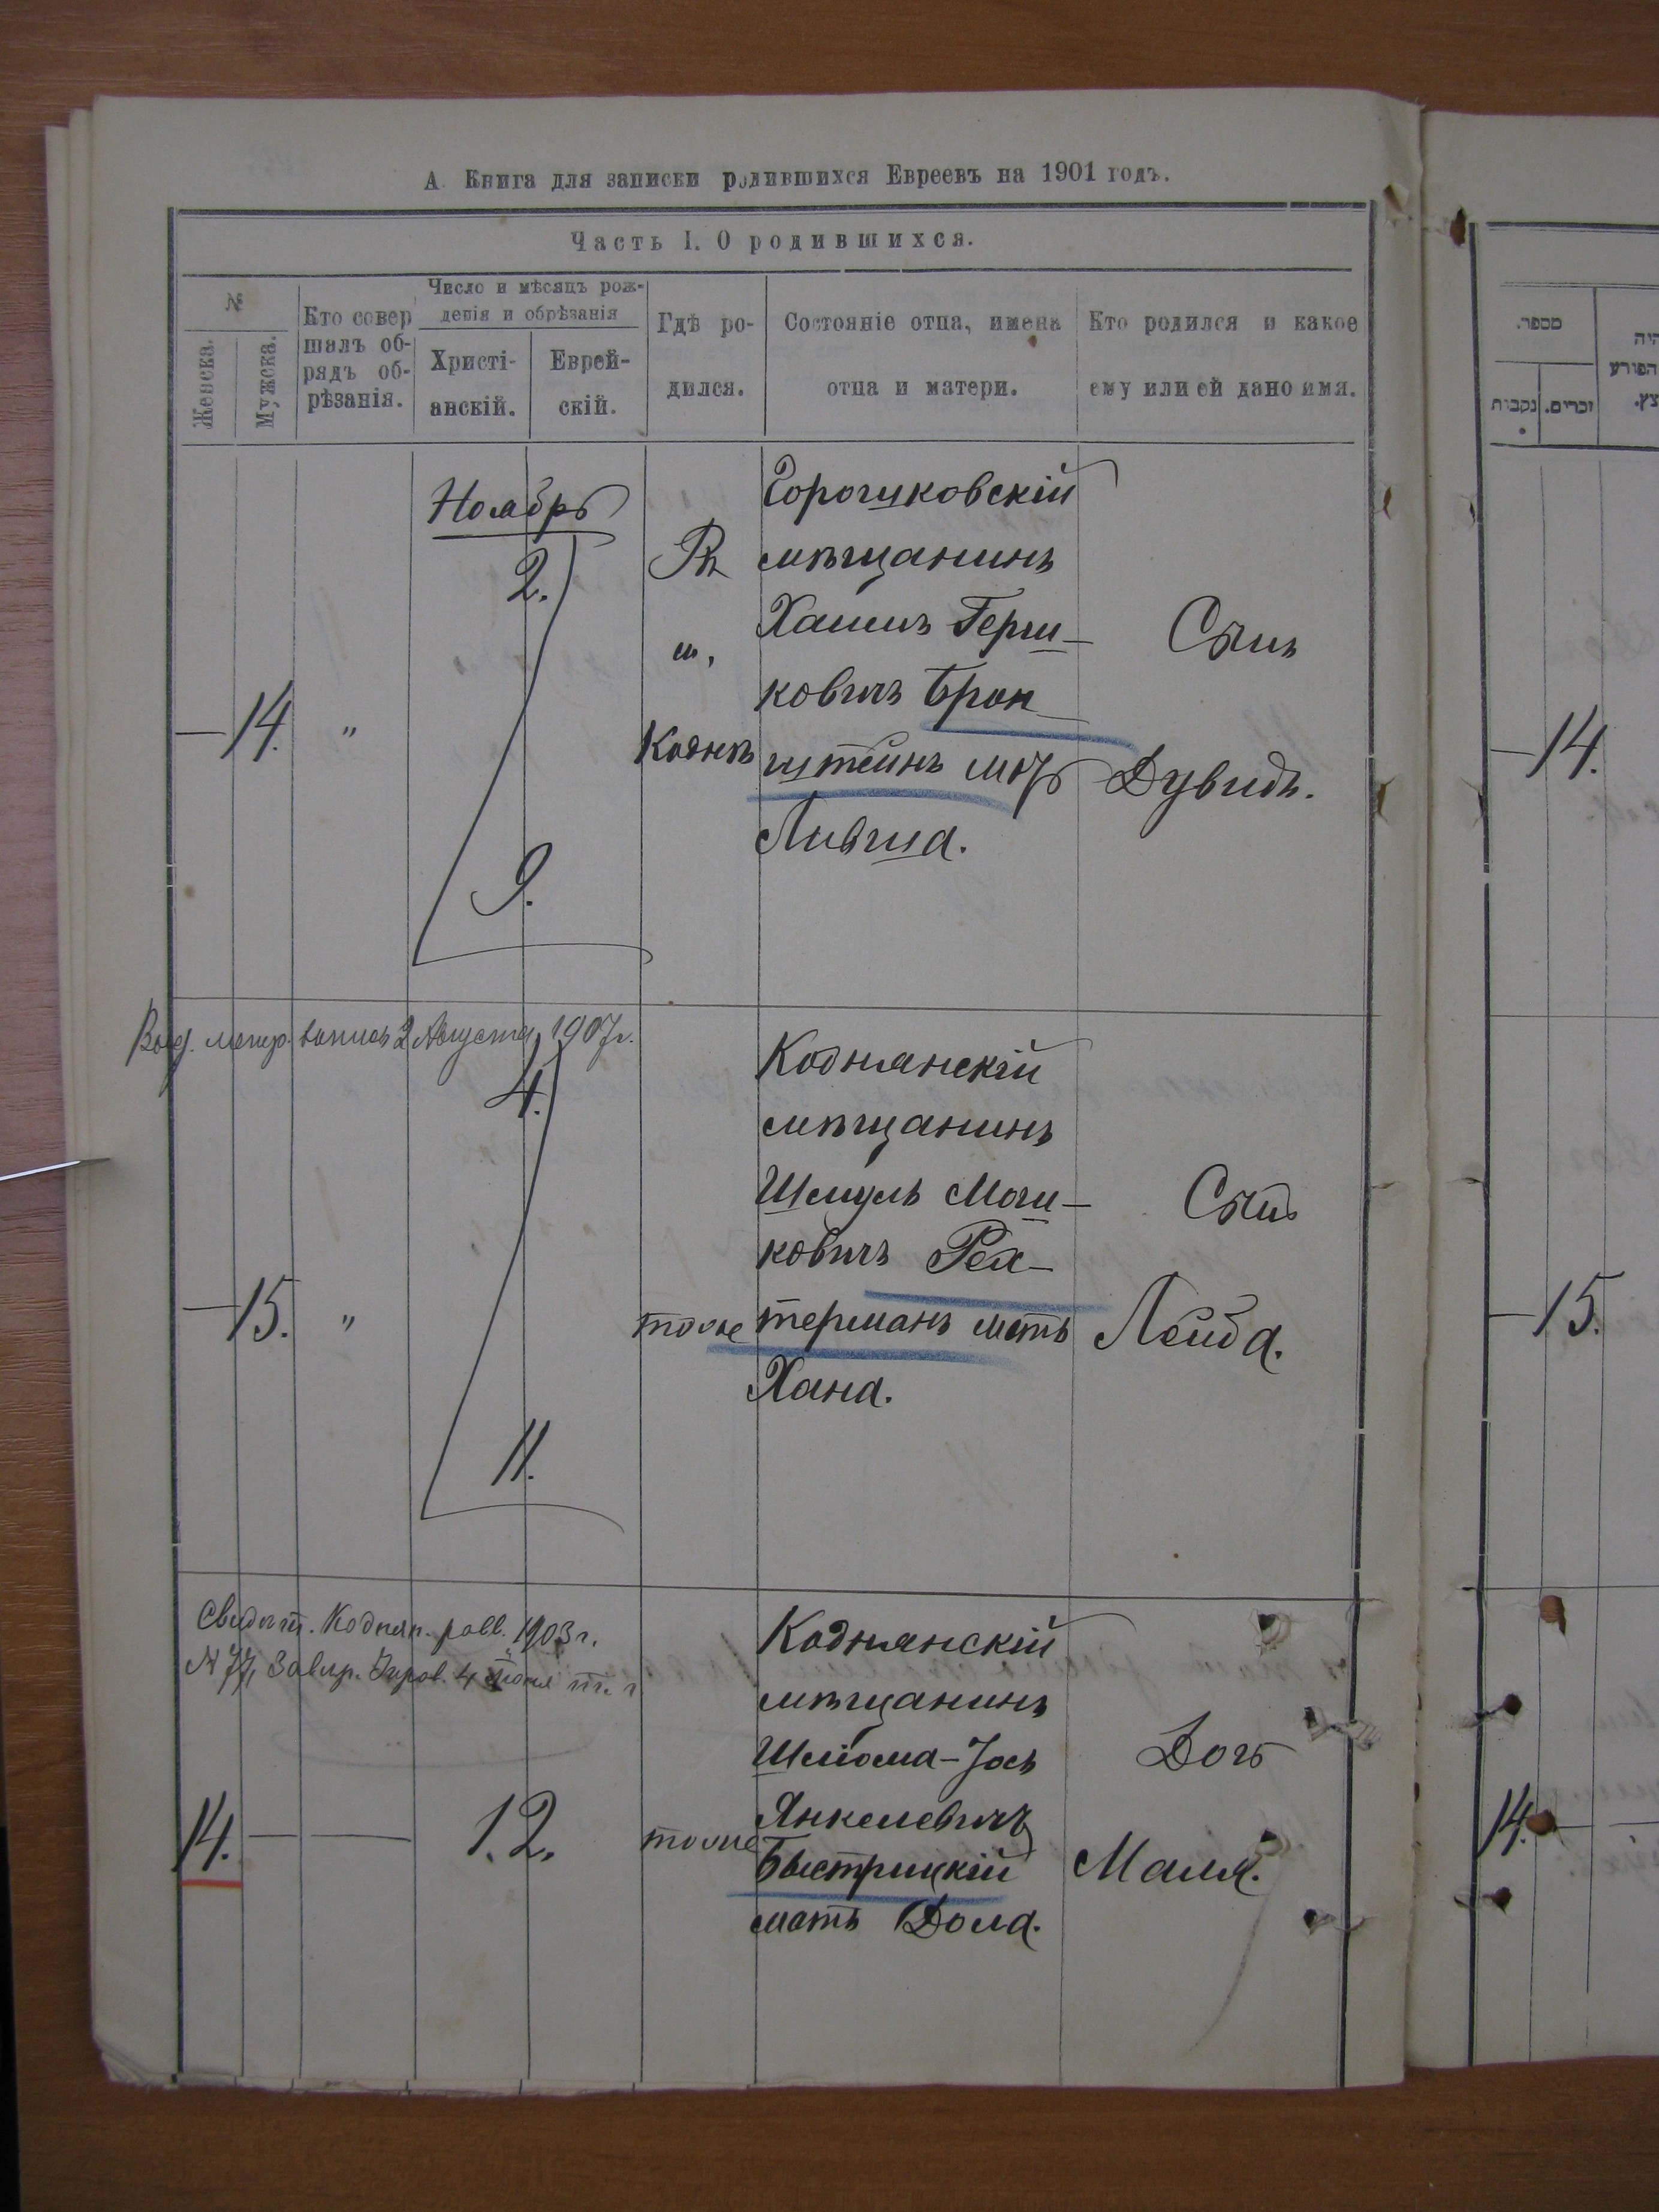 А. Книга для записки родившихся Евреевъ на 1901 годъ.
Часть I. О родившихся.
№
Женска.
Мужска.
Кто совер
шалъ об-
рядъ об-
рѣзанія.
Число и мѣсяцъ рож-
денія и обрѣзанія
Христі-
анскій.
Еврей-
скій.
Гдѣ ро-
дился.
Состояніе отца, имена
отца и матери.
Кто родился и какое
ему или ей дано имя.
מספר.
נקבות
זכרים.
Ноябрь
— 14. "
2.
9.
Въ
м.
Коднѣ
Горошковскій
мѣщанинъ
Хаимъ Герш-
ковичъ Брон
штейнъ
Лившa.
Сынъ
Дувидъ.
— 14.
Выд. метр. 2 Августа 1907 г.
— 15. "
4.
11.
тоже
Коднянскій
мѣщанинъ
Шмуль Мош-
ковичъ Рех-
терманъ мать
Хана.
Сынъ
Лейба.
— 15.
Свидѣт. Коднян. равв. 1903 г.
№ 77, 4
14. — —
12.
тоже
Коднянскій
мѣщанинъ
Шліома-Іось
Янкелевичъ
Быстрицкій
мать
Дочь
Маля.
14. —